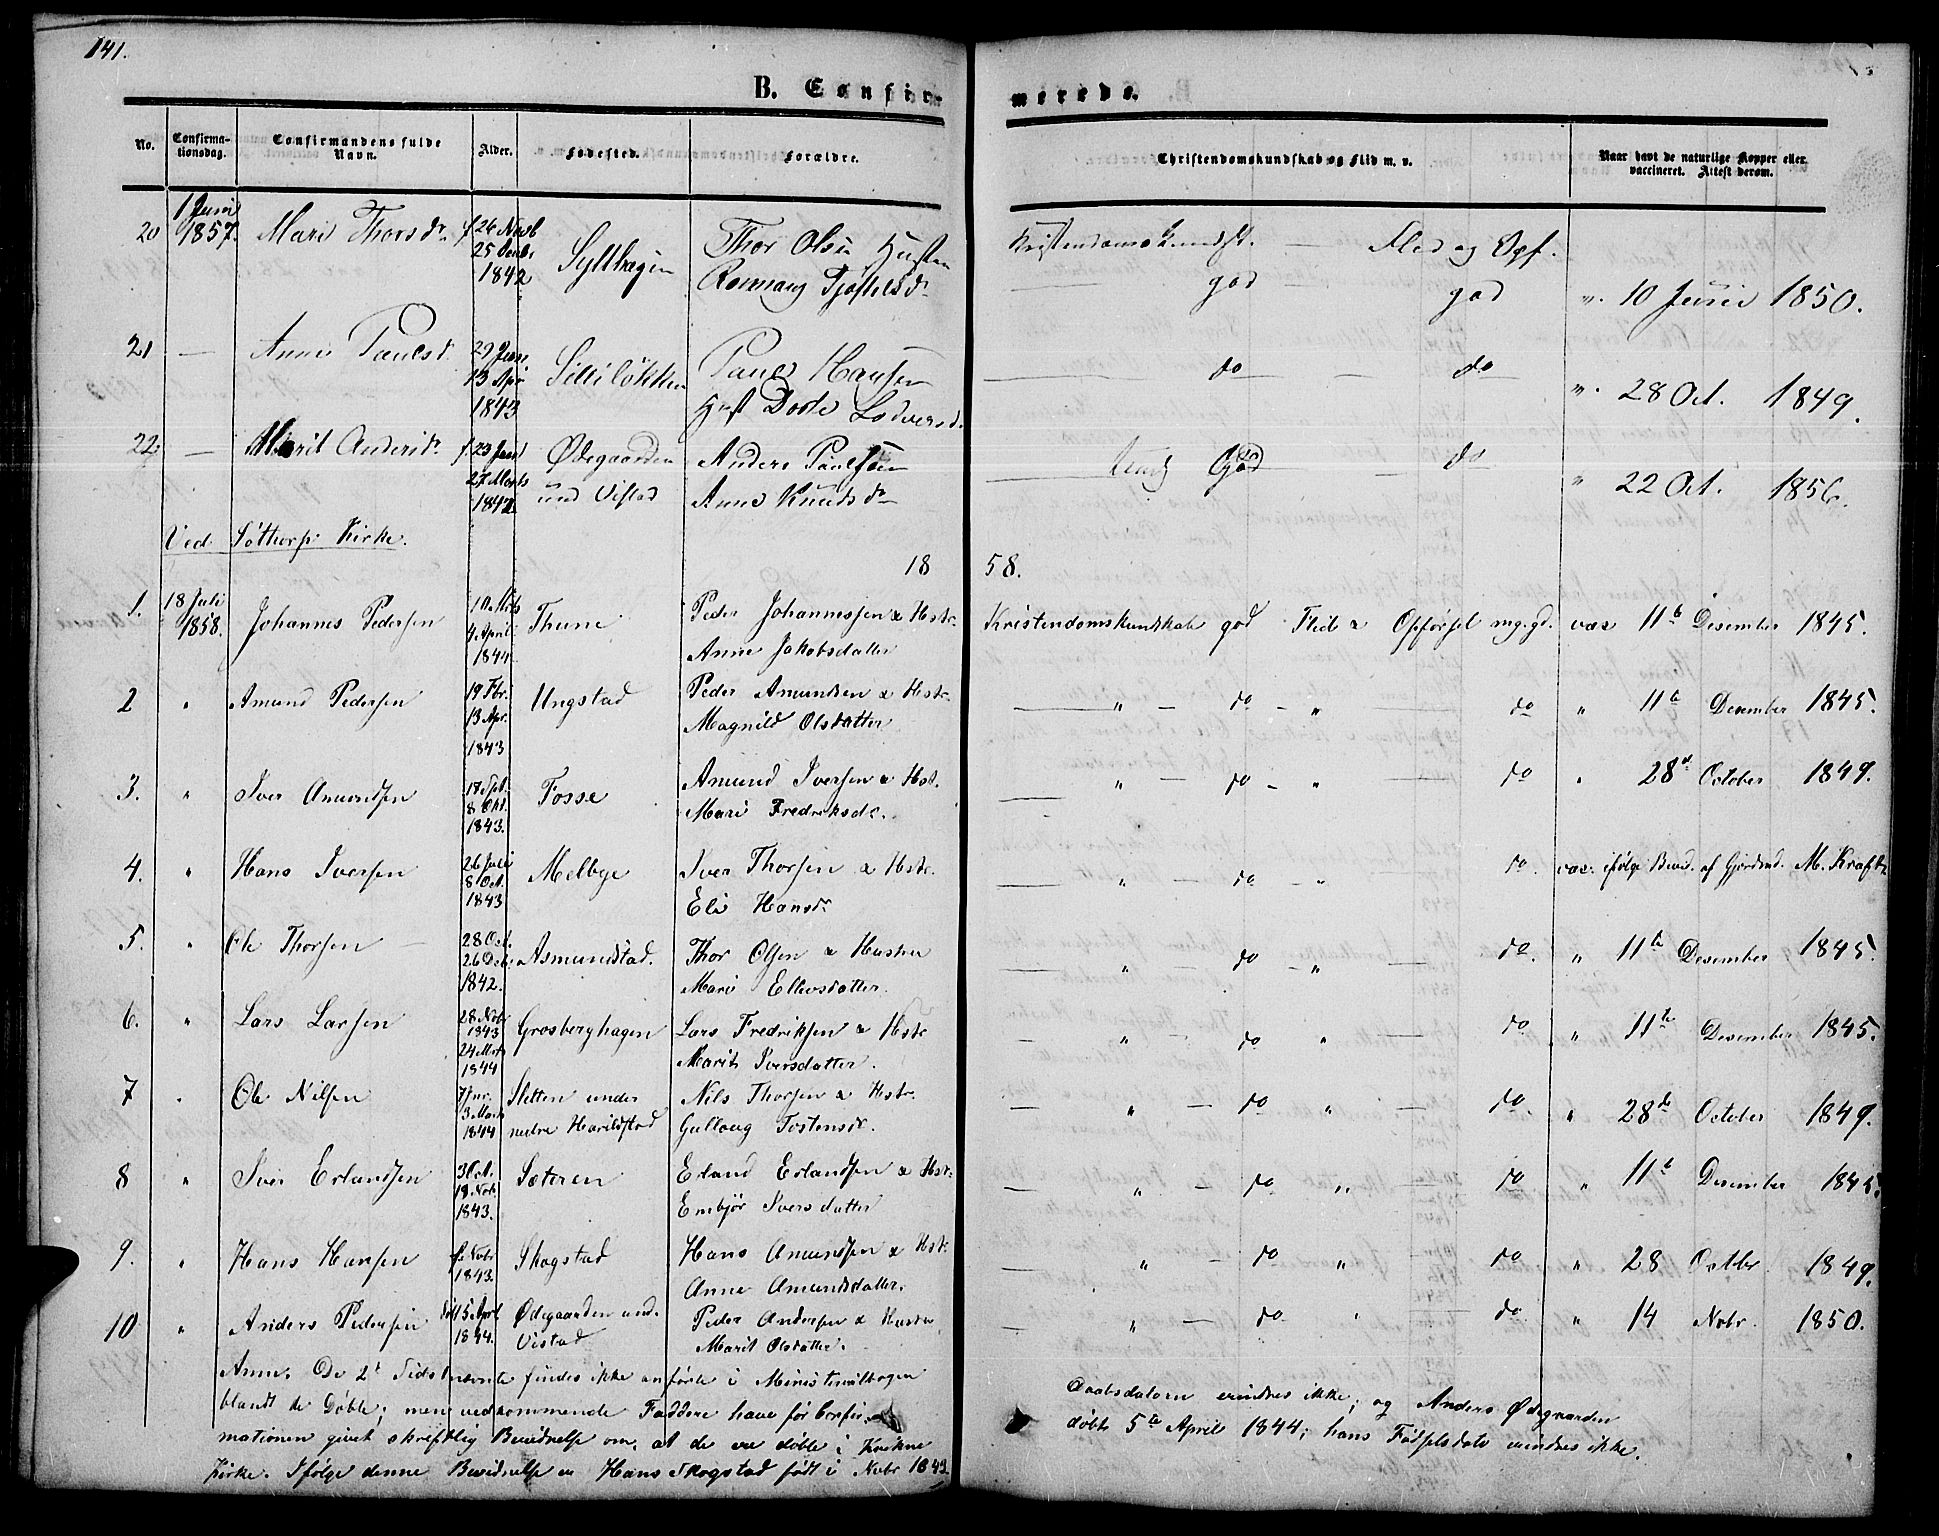 141.
B. Confirmerede.
No. Confirmationsdag. Confirmandens fulde Navn. Alder. Fødested. Forældre. Christendomskundskab og Flid m. v. Naar havt de naturlige Kopper eller vaccineret. Attest derom.
20 1 Juni 1857. Mari Thorsdr. f. 26 Novb 25 Decbr 1842 Sylthagen Thor Olsen Hustru Rannaug Tjøstelsdr Kristendomskundsk. god Flid og Opf. god ". 10 Juni 1850.
21 — Anne Paulsd. 29 Janr 13 Apr 1843 Sillilökken Paul Hansen Hust Dorte Lodversd. — do — do ". 28 Oct. 1849.
22 — Marit Andersdr. f. 23 Jan 27 Marts 1842 Ødegaarden und Vistad Anders Paulsen Anne Knudsdr — God — do " 22 Oct. 1856.
Ved Sóthorp Kirke.
1858.
1. 18 Juli 1858. Johannes Pedersen 10 Mts 4 April 1844 Thune Peder Johannessen & Hstr. Anne Jakobsdatter Kristendomskundskab god Flid & Opførsel mg.gd. vac 11te Desember 1845.
2 " Amund Pedersen 19 Fbr. 13 Apr. 1843 Ungstad Peder Amundsen & Hstr. Magnild Olsdatter — " — do — " — do " 11te Desember 1845.
3. " Iver Amundsen 17 Spt. 8 Okt. 1843. Fosse Amund Iversen & Hst. Mari Fredriksdr. — " — do — " — do " 28de October 1849.
4. " Hans Iversen 26 Juli 8 Oct. 1843 Melbye Iver Thorsen & Hstr. Eli Hansdr — " — do — " do. vac. ifølge Bevid. af Gjordmd. M. Kraft
5. " Ole Thorsen — 28 Oct. 26 Dec. 1842. Asmundstad. Thor Olsen & Hustru Mari Ellevsdatter. — " — do — " — do. " 11te Desember 1845.
6. " Lars Larsen 28 Nobr 1843 24 Mts 1844 Grosberghagen Lars Fredriksen & Hstr Marit Iversdatter. — " do " — do " 11te Desember 1845.
7 " Ole Nilsen 7 Jnr. 3 Marts 1844 Sletten under nedre Harildstad Nils Thorsen & Hstr. Gullaug Tostensdr. — " — do " — do. " 28de October 1849.
8 " Iver Erlandsen 3 Oct. 19 Nob. 1843. Sæteren Erland Erlandsen & Hstr. Embjør Iversdatter — " — do " — do " 11te Desember 1845.
9. " Hans Hansen f. Nobr 1843. Skogstad Hans Amundsen & Hstr. Anne Amundsdatter. — " — do " — do " 28 Octbr. 1849.
10 " Anders Pedersen døbt 5 April 1844. Ødegaarden und. Vistad Peder Andersen & Hustru Marit Olsdatter. — " — do " — do " 14 Nobr. 1850.
Anm. De 2de Sidstnævnte findes ikke anførte i Ministerialbogen
blandt de Døbte; men vedkommende Faddere have før Confir-
mationen givet skriftlig Bevidnelse om, at de ere døbte i Kvikne
Kirke. Ifølge denne Bevidnelse er Hans Skogstad født i Nobr 1843
Daabsdatoen erindres ikke; og Anders Ødegaarden
døbt 5te April 1844; hans Fødselsdato erindres ikke.